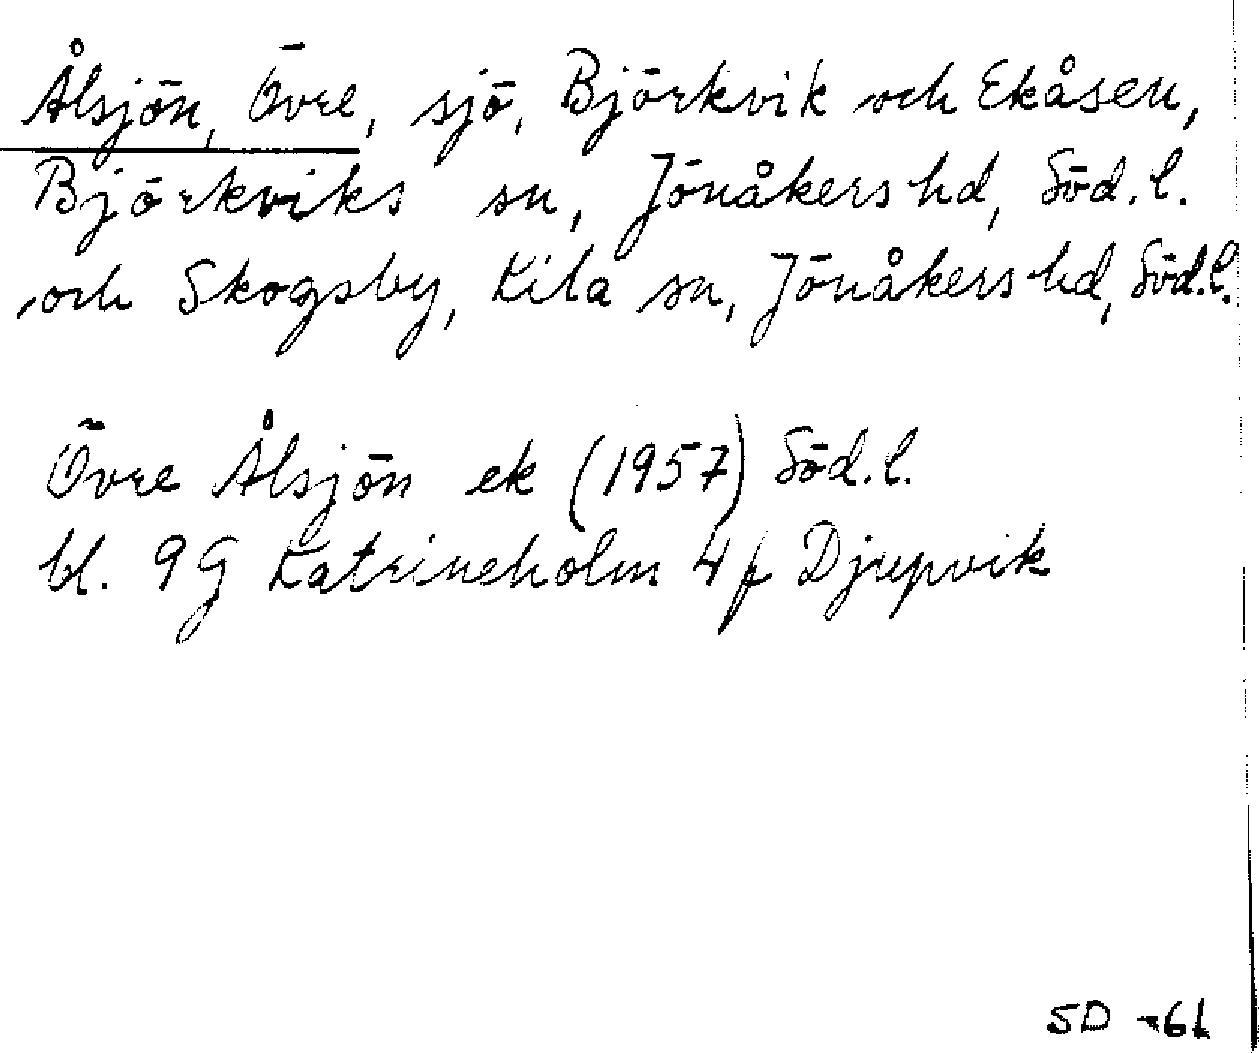 Ålsjön, Övre, sjö, Björkvik och Ekåsen,
Björkviks sn, Jönåkers hd, Söd. l.
och Skogsby, Kila sn, Jönåkers hd, Söd. l.
Övre Ålsjön ek (1957) Söd. l.
bl. 9G Katrineholm 4f Djupvik
SD -61